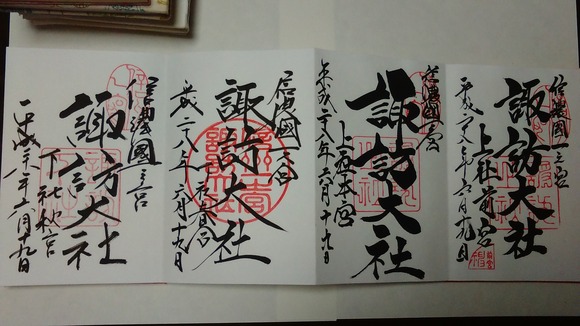 信濃國一之宮
諏訪大社
上社前宮
平成二十八年六月十九日
信濃國一之宮
諏訪大社
上社本宮
平成二十八年六月十九日
信濃國一之宮
諏訪大社
下社春宮
平成二十八年六月十九日
信濃國一之宮
諏訪大社
下社秋宮
平成二十八年六月十九日